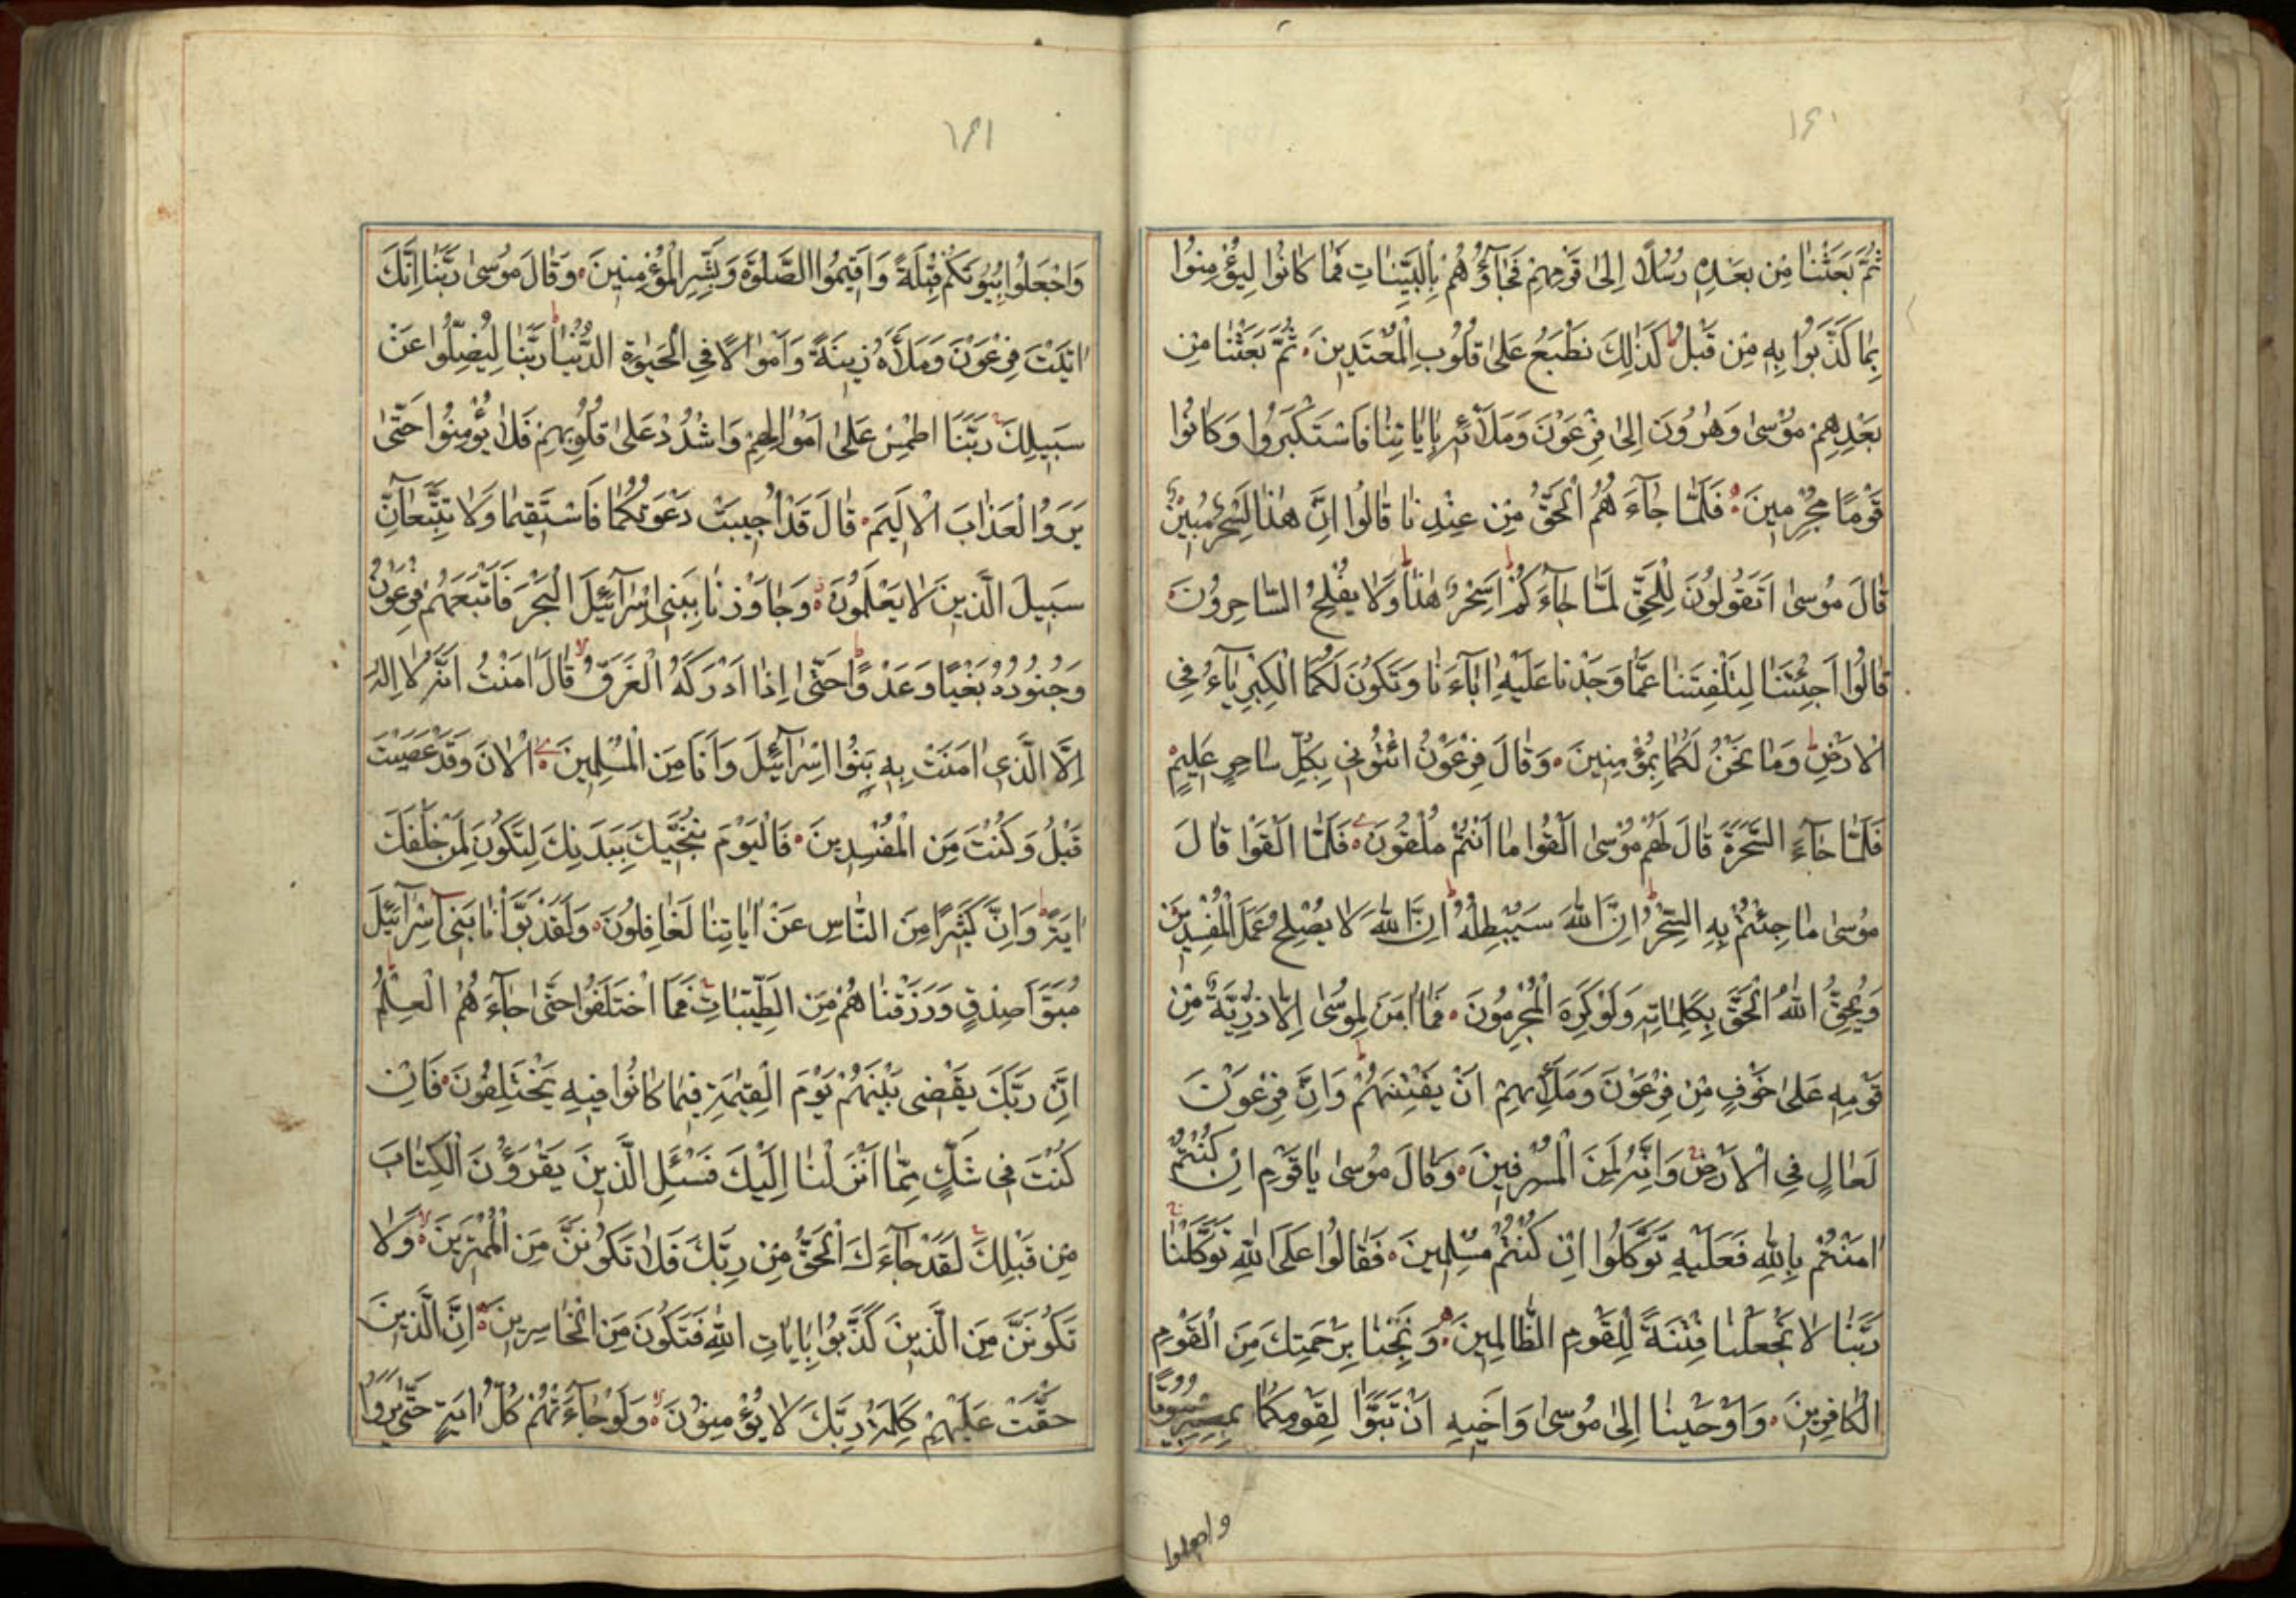 ١٦٠
ثُمَّ بَعَثْنَا مِنْ بَعْدِهِ رُسُلًا اِلىٰ قَوْمِهِمْ فَجَآؤُهُمْ بِالْبَيِّنَاتِ فَمَا كَانُوا لِيُؤْمِنُوا
بِمَا كَذَّبُوا بِهِ مِنْ قَبْلُ ط كَذٰلِكَ نَطْبَعُ عَلىٰ قُلُوبِ الْمُعْتَدِينَ ۰ ثُمَّ بَعَثْنَا مِنْ
بَعْدِهِمْ مُوْسىٰ وَهٰرُوْنَ اِلىٰ فِرْعَوْنَ وَمَلَائِهِ بِاٰيَاتِنَا فَاسْتَكْبَرُوا وَكَانُوا
قَوْمًا مُجْرِمِينَ ۰ فَلَمَّا جَآءَهُمُ الْحَقُّ مِنْ عِنْدِنَا قَالُوا اِنَّ هٰذَا لَسِحْرٌ مُبِينٌ
قَالَ مُوسىٰ اَتَقُولُونَ لِلْحَقِّ لَمَّا جَآءَكُمْ ط اَسِحْرٌ هٰذَا ط وَلَا يُفْلِحُ السَّاحِرُوْنَ ۰
قَالُوا اَجِئْتَنَا لِتَلْفِتَنَا عَمَّا وَجَدْنَا عَلَيْهِ اٰبَآءَنَا وَتَكُوْنَ لَكُمَا الْكِبْرِيَآءُ فِي
الْاَرْضِ ط وَمَا نَحْنُ لَكُمَا بِمُؤْمِنِينَ ۰ وَقَالَ فِرْعَوْنُ ائْتُوْنِي بِكُلِّ سَاحِرٍ عَلِيمٍ ۰
فَلَمَّا جَآءَ السَّحَرَةُ قَالَ لَهُمْ مُوْسىٰ اَلْقُوا مَا اَنْتُمْ مُلْقُوْنَ ۰ فَلَمَّا اَلْقَوْا قَالَ
مُوسىٰ مَا جِئْتُمْ بِهِ السِّحْرُ ط اِنَّ اللّٰهَ سَيُبْطِلُهُ ط اِنَّ اللّٰهَ لَا يُصْلِحُ عَمَلَ الْمُفْسِدِينَ ۰
وَيُحِقُّ اللّٰهُ الْحَقَّ بِكَلِمَاتِهِ وَلَوْ كَرِهَ الْمُجْرِمُونَ ۰ فَمَا اٰمَنَ لِمُوْسىٰ اِلَّا ذُرِّيَّةٌ مِنْ
قَوْمِهِ عَلىٰ خَوْفٍ مِنْ فِرْعَوْنَ وَمَلَائِهِمْ اَنْ يَفْتِنَهُمْ ط وَاِنَّ فِرْعَوْنَ
لَعَالٍ فِي الْاَرْضِ ج وَاِنَّهُ لَمِنَ الْمُسْرِفِينَ ۰ وَقَالَ مُوسىٰ يَا قَوْمِ اِنْ كُنْتُمْ
اٰمَنْتُمْ بِاللّٰهِ فَعَلَيْهِ تَوَكَّلُوا اِنْ كُنْتُمْ مُسْلِمِينَ ۰ فَقَالُوا عَلَى اللّٰهِ تَوَكَّلْنَا ج
رَبَّنَا لَا تَجْعَلْنَا فِتْنَةً لِلْقَوْمِ الظَّالِمِينَ ۰ وَنَجِّنَا بِرَحْمَتِكَ مِنَ الْقَوْمِ
الْكَافِرِينَ ۰ وَاَوْحَيْنَا اِلىٰ مُوْسىٰ وَاَخِيهِ اَنْ تَبَوَّا لِقَوْمِكُمَا بِمِصْرَ بُيُوتًا
واجعلوا
١٦١
وَاجْعَلُوا بُيُوتَكُمْ قِبْلَةً وَاَقِيمُوا الصَّلٰوةَ وَبَشِّرِ الْمُؤْمِنِينَ ۰ وَقَالَ مُوسىٰ رَبَّنَا اِنَّكَ
اٰتَيْتَ فِرْعَوْنَ وَمَلَأَهُ زِينَةً وَاَمْوَالًا فِي الْحَيٰوةِ الدُّنْيَا ط رَبَّنَا لِيُضِلُّوا عَنْ
سَبِيلِكَ ج رَبَّنَا اطْمِسْ عَلىٰ اَمْوَالِهِمْ وَاشْدُدْ عَلىٰ قُلُوبِهِمْ فَلَا يُؤْمِنُوا حَتّىٰ
يَرَوُا الْعَذَابَ الْاَلِيمَ ۰ قَالَ قَدْ اُجِيبَتْ دَعْوَتُكُمَا فَاسْتَقِيمَا وَلَا تَتَّبِعَآنِّ
سَبِيلَ الَّذِينَ لَا يَعْلَمُوْنَ ۰ وَجَاوَزْنَا بِبَنِي اِسْرَآئِيلَ الْبَحْرَ فَاَتْبَعَهُمْ فِرْعَوْنُ
وَجُنُودُهُ بَغْيًا وَعَدْوًا ط حَتّىٰ اِذَا اَدْرَكَهُ الْغَرَقُ لا قَالَ اٰمَنْتُ اَنَّهُ لَا اِلٰهَ
اِلَّا الَّذِي اٰمَنَتْ بِهِ بَنُوا اِسْرَآئِيلَ وَاَنَا مِنَ الْمُسْلِمِينَ ۰ اٰلْاٰنَ وَقَدْ عَصَيْتَ
قَبْلُ وَكُنْتَ مِنَ الْمُفْسِدِينَ ۰ فَالْيَوْمَ نُنَجِّيكَ بِبَدَنِكَ لِتَكُونَ لِمَنْ خَلْفَكَ
اٰيَةً ط وَاِنَّ كَثِيرًا مِنَ النَّاسِ عَنْ اٰيَاتِنَا لَغَافِلُونَ ۰ وَلَقَدْ بَوَّأْنَا بَنِي اِسْرَآئِيلَ
مُبَوَّأَ صِدْقٍ وَرَزَقْنَاهُمْ مِنَ الطَّيِّبَاتِ ج فَمَا اخْتَلَفُوا حَتّىٰ جَآءَهُمُ الْعِلْمُ ط
اِنَّ رَبَّكَ يَقْضِي بَيْنَهُمْ يَوْمَ الْقِيٰمَةِ فِيمَا كَانُوا فِيهِ يَخْتَلِفُونَ ۰ فَاِنْ
كُنْتَ فِي شَكٍّ مِمَّا اَنْزَلْنَا اِلَيْكَ فَسْئَلِ الَّذِينَ يَقْرَؤُنَ الْكِتَابَ
مِنْ قَبْلِكَ ج لَقَدْ جَآءَكَ الْحَقُّ مِنْ رَبِّكَ فَلَا تَكُونَنَّ مِنَ الْمُمْتَرِينَ ۰ لا وَلَا
تَكُونَنَّ مِنَ الَّذِينَ كَذَّبُوا بِاٰيَاتِ اللّٰهِ فَتَكُونَ مِنَ الْخَاسِرِينَ ۰ اِنَّ الَّذِينَ
حَقَّتْ عَلَيْهِمْ كَلِمَةُ رَبِّكَ لَا يُؤْمِنُوْنَ ۰ لا وَلَوْ جَآءَتْهُمْ كُلُّ اٰيَةٍ حَتّىٰ يَرَوُا